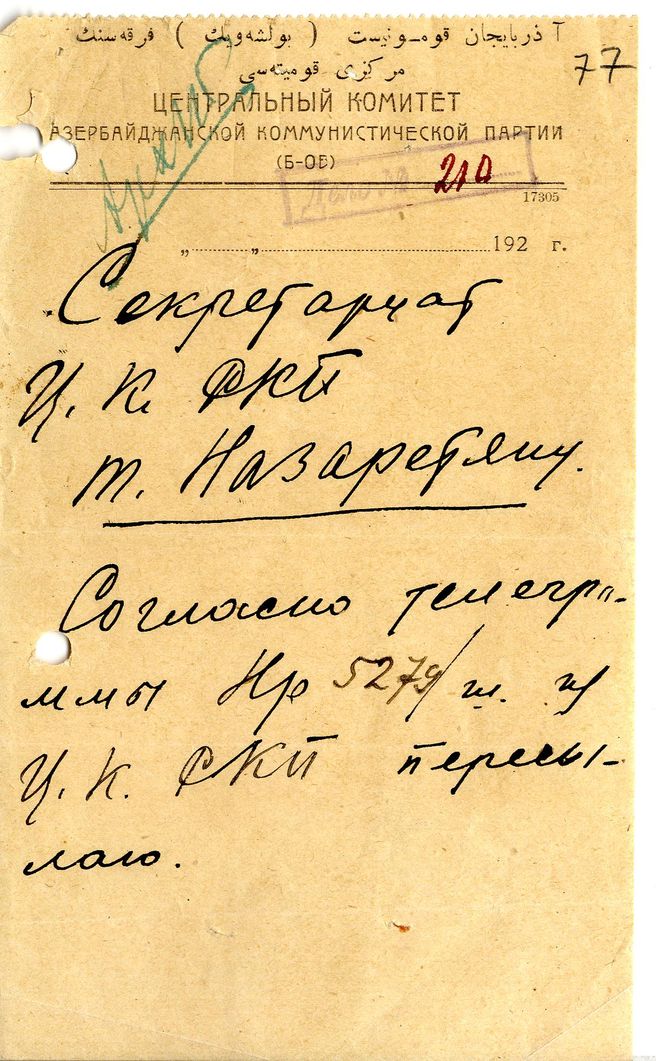 آذربایجان قومـونیست ( بولشه‌ویك ) فرقه‌سنك
مركزی قومیته‌سی
77
ЦЕНТРАЛЬНЫЙ КОМИТЕТ
АЗЕРБАЙДЖАНСКОЙ КОММУНИСТИЧЕСКОЙ ПАРТИИ
(Б-ОВ)
Архив
210
17305
„ “ 192 г.
Секретариат
Ц. К. РКП
т. Назаретяну.
Согласно телегра-
ммы Нр 5279/ш.
Ц. К. РКП пересы-
лаю.